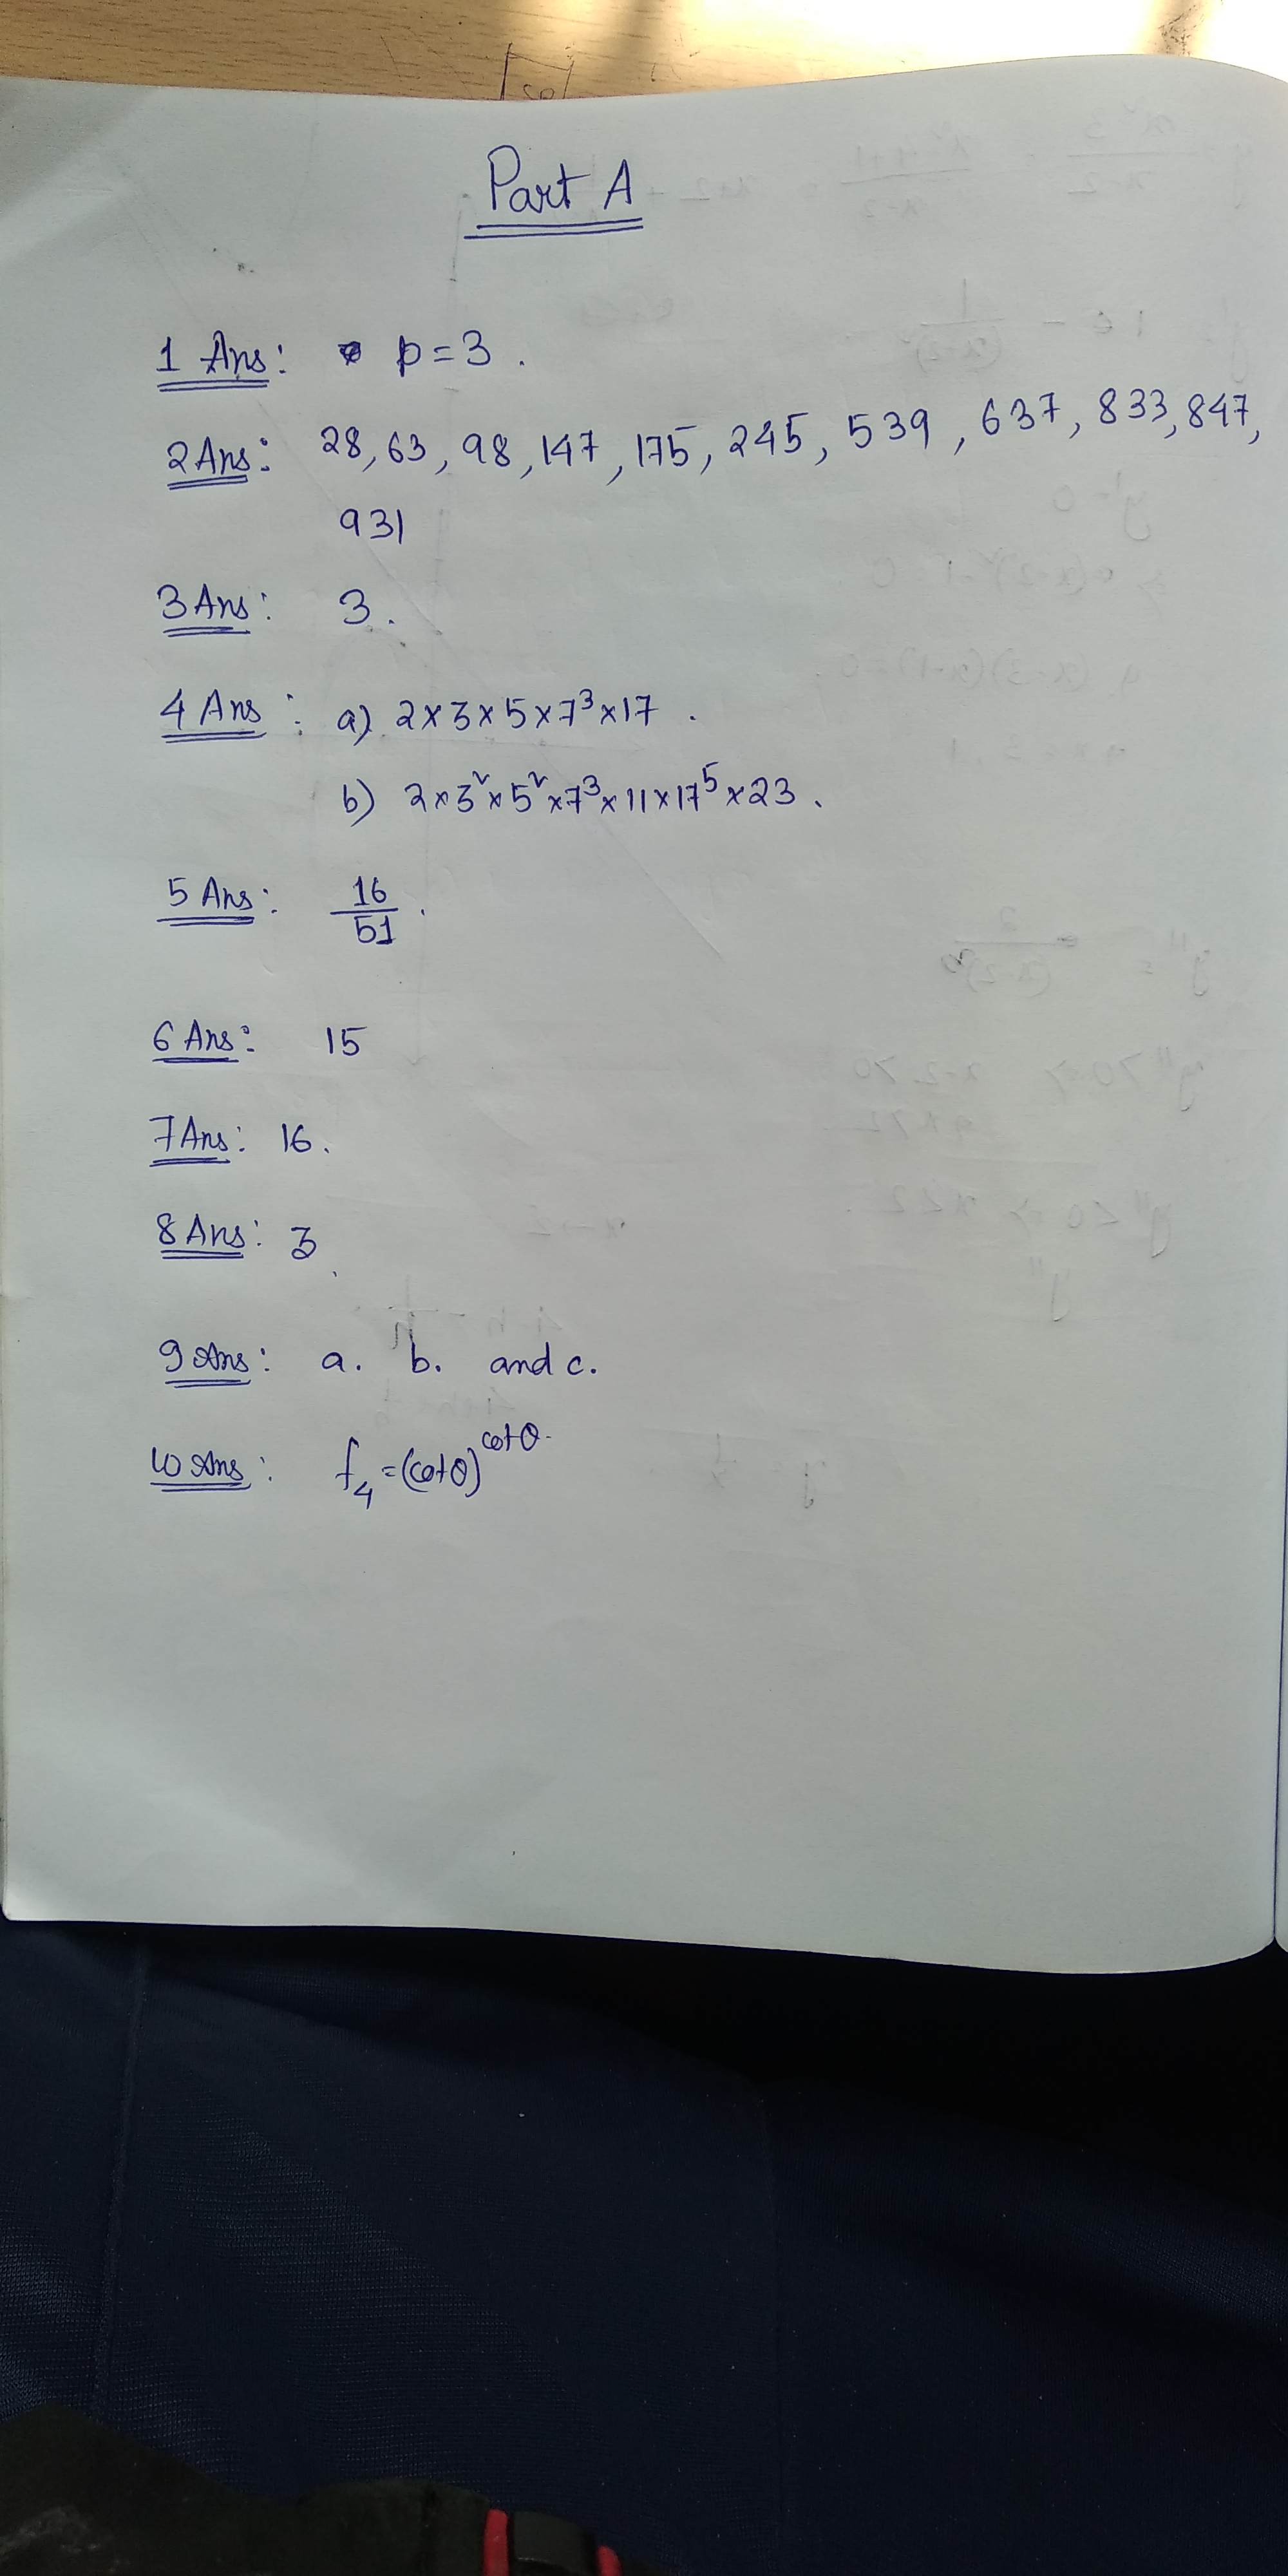 Part A
1 Ans: p=3.
2 Ans: 28, 63, 98, 147, 175, 245, 539, 637, 833, 847,
931
3 Ans: 3.
4 Ans: a) 2×3×5×7³×17.
b) 2×3²×5²×7³×11×17⁵×23.
5 Ans: 16/51.
6 Ans: 15
7 Ans: 16.
8 Ans: 3
9 Ans: a. b. and c.
10 Ans: f₄=(cotθ)^cotθ.